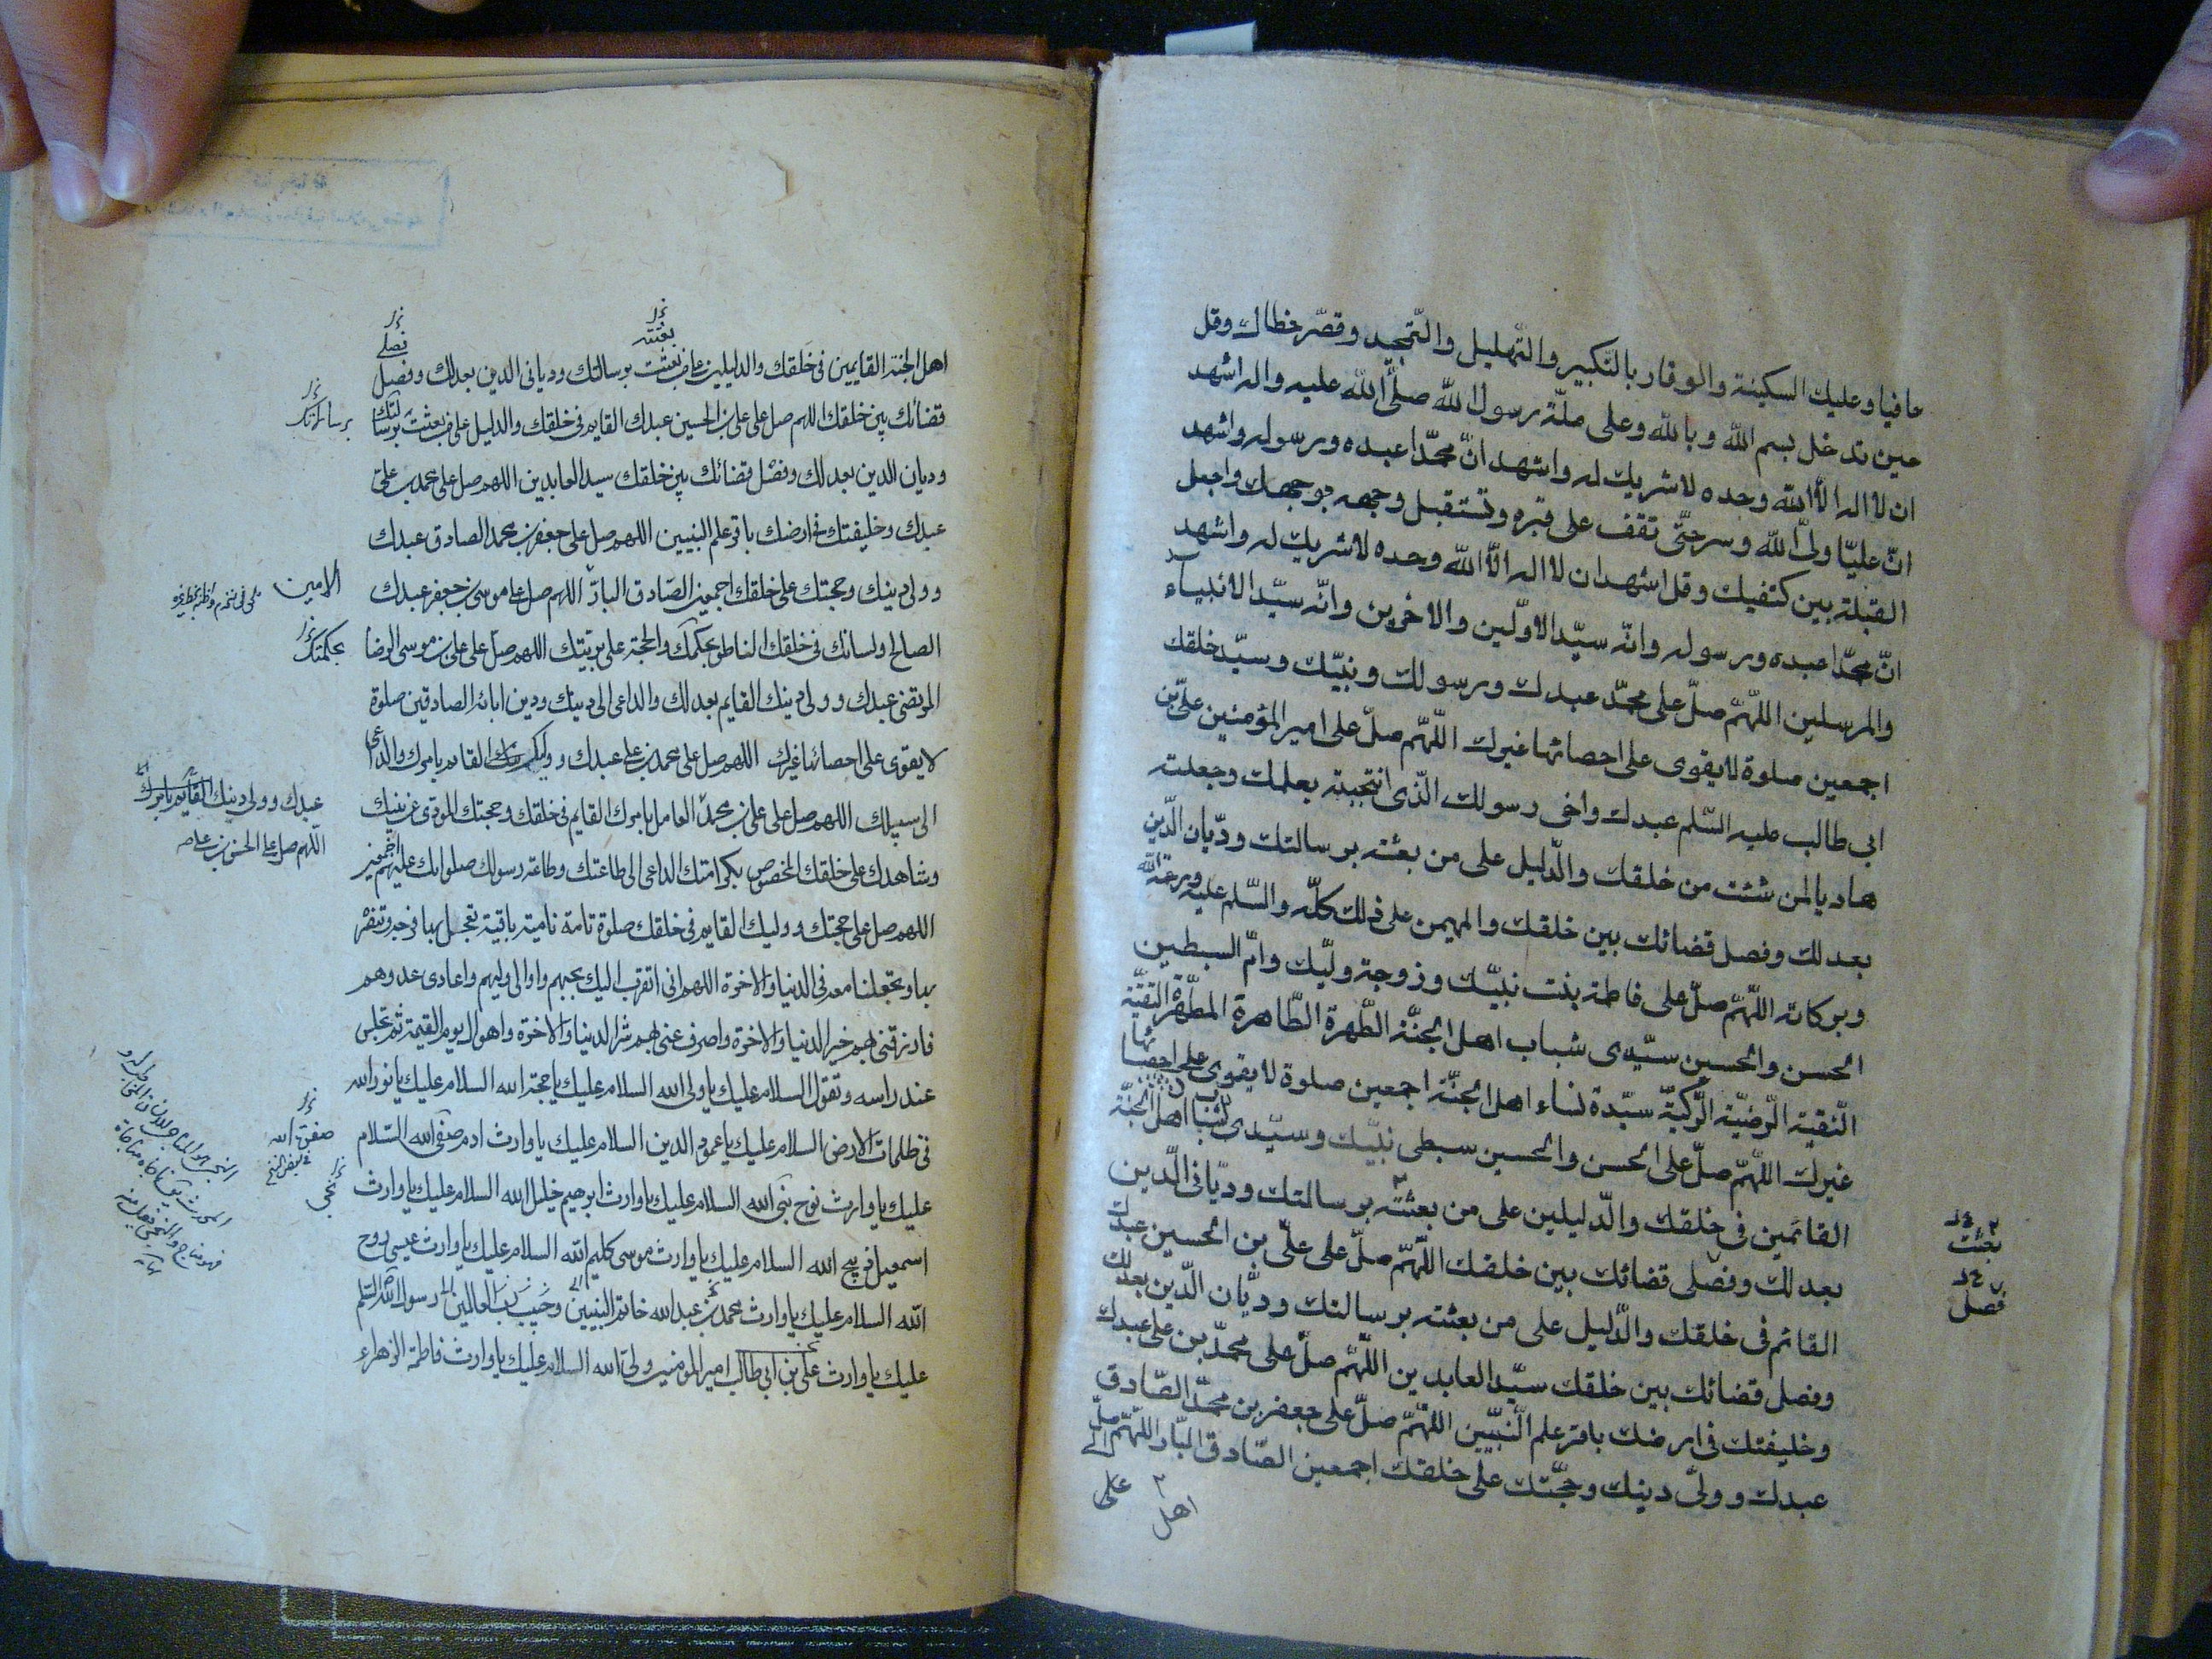 حافيا وعليك السكينة والوقار بالتكبير والتهليل والتمجيد وقصر خطاك وقل
حين تدخل بسم الله وبالله وعلى ملة رسول الله صلى الله عليه واله اشهد
ان لا اله الا الله وحده لا شريك له واشهد ان محمدا عبده ورسوله واشهد
ان عليا ولى الله وسر حتى تقف على قبره وتستقبل وجهه بوجهك واجعل
القبلة بين كتفيك وقل اشهد ان لا اله الا الله وحده لا شريك له واشهد
ان محمدا عبده ورسوله وانه سيد الاولين والاخرين وانه سيد الانبياء
والمرسلين اللهم صل على محمد عبدك ورسولك ونبيك وسيد خلقك
اجمعين صلوة لا يقوى على احصائها غيرك اللهم صل على امير المؤمنين على بن
ابى طالب عليه السلم عبدك واخى رسولك الذى انتجبته بعلمك وجعلته
هاديا لمن شئت من خلقك والدليل على من بعثته برسالتك وديان الدين
بعدلك وفصل قضائك بين خلقك والمهيمن على ذلك كله والسلم عليه ورحمة الله
وبركاته اللهم صل على فاطمة بنت نبيك وزوجة وليك وام السبطين
الحسن والحسين سيدى شباب اهل الجنة الطهرة الطاهرة المطهرة التقية
النقية الرضية الزكية سيدة نساء اهل الجنة اجمعين صلوة لا يقوى على احصائها
غيرك اللهم صل على الحسن والحسين سبطى نبيك وسيدى شباب اهل الجنة
القائمين فى خلقك والدليلين على من بعثته برسالتك وديانى الدين
بعدلك وفصلى قضائك بين خلقك اللهم صل على على بن الحسين عبدك
القائم فى خلقك والدليل على من بعثته برسالتك وديان الدين بعدلك
وفصل قضائك بين خلقك سيد العابدين اللهم صل على محمد بن على عبدك
وخليفتك فى ارضك باقر علم النبيين اللهم صل على جعفر بن محمد الصادق
عبدك وولى دينك وحجتك على خلقك اجمعين الصادق البار اللهم صل
على
اهل
بعثت
فصل
بعثته
فصلى
اهل الجنة القايمين فى خلقك والدليلين على من بعثت برسالتك وديانى الدين بعدلك وفصل
قضائك بين خلقك اللهم صل على على بن الحسين عبدك القايم فى خلقك والدليل على من بعثت برسالتك
وديان الدين بعدلك وفصل قضائك بين خلقك سيد العابدين اللهم صل على محمد بن على
عبدك وخليفتك فى ارضك باقر علم النبيين اللهم صل على جعفر بن محمد الصادق عبدك
وولى دينك وحجتك على خلقك اجمعين الصادق البار اللهم صل على موسى بن جعفر عبدك
الصالح ولسانك فى خلقك الناطق بحكمك والحجة على بريتك اللهم صل على على بن موسى الرضا
المرتضى عبدك وولى دينك القايم بعدلك والداعى الى دينك ودين ابائه الصادقين صلوة
لا يقوى على احصائها غيرك اللهم صل على محمد بن على عبدك ووليك القايم بامرك والداعى
الى سبيلك اللهم صل على على بن محمد العامل بامرك القايم فى خلقك وحجتك المودى عن نبيك
وشاهدك على خلقك المخصوص بكرامتك الداعى الى طاعتك وطاعة رسولك صلواتك عليهم اجمعين
اللهم صل على حجتك ووليك القايم فى خلقك صلوة تامة نامية باقية تعجل بها فرجه وتنصره
بها وتجعلنا معه فى الدنيا والاخرة اللهم انى اتقرب اليك بحبهم واوالى وليهم واعادى عدوهم
فارزقنى بهم خير الدنيا والاخرة واصرف عنى بهم شر الدنيا والاخرة واهوال يوم القيمة ثم تجلس
عند راسه وتقول السلام عليك يا ولى الله السلام عليك يا حجة الله السلام عليك يا نور الله
فى ظلمات الارض السلام عليك يا عمود الدين السلام عليك يا وارث ادم صفى الله السلام
عليك يا وارث نوح نبى الله السلام عليك يا وارث ابرهيم خليل الله السلام عليك يا وارث
اسمعيل ذبيح الله السلام عليك يا وارث موسى كليم الله السلام عليك يا وارث عيسى روح
الله السلام عليك يا وارث محمد بن عبدالله خاتم النبيين وحبيب رب العالمين رسول الله السلم
عليك يا وارث على بن ابى طالب امير المومنين ولى الله السلام عليك يا وارث فاطمة الزهراء
برسالاتك
الامين
بحكمتك
عبدك وولى دينك القايم بامرك
اللهم صل على الحسن بن على
صفوة الله
فى بعض النسخ
نجى